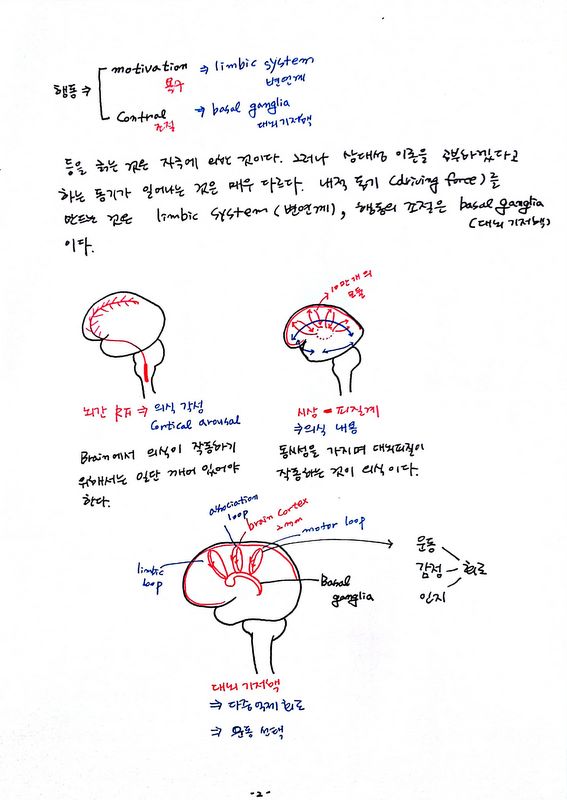 행동 ⇒
motivation ⇒ limbic system
욕구 변연계
Contral → basal ganglia
조절 대뇌기저핵
등을 긁는 것은 자극에 의한 것이다. 그러나 상대성 이론을 공부하겠다고
하는 동기가 일어나는 것은 매우 다르다. 내적 동기 (driving force)를
만드는 것은 limbic system (변연계), 행동의 조절은 basal ganglia
(대뇌기저핵)
이다.
10만개의
모듈
뇌간 RF ⇒ 의식 각성
Cortical arousal
Brain에서 의식이 작동하기
위해서는 일단 깨어 있어야
한다.
시상 - 피질계
⇒ 의식 내용
동시성을 가지며 대뇌피질이
작동하는 것이 의식이다.
association
loop
brain cortex
2mm
motor loop
limbic
loop
Basal
ganglia
운동
감정 회로
인지
대뇌기저핵
⇒ 다중억제 회로
⇒ 운동 선택
-2-